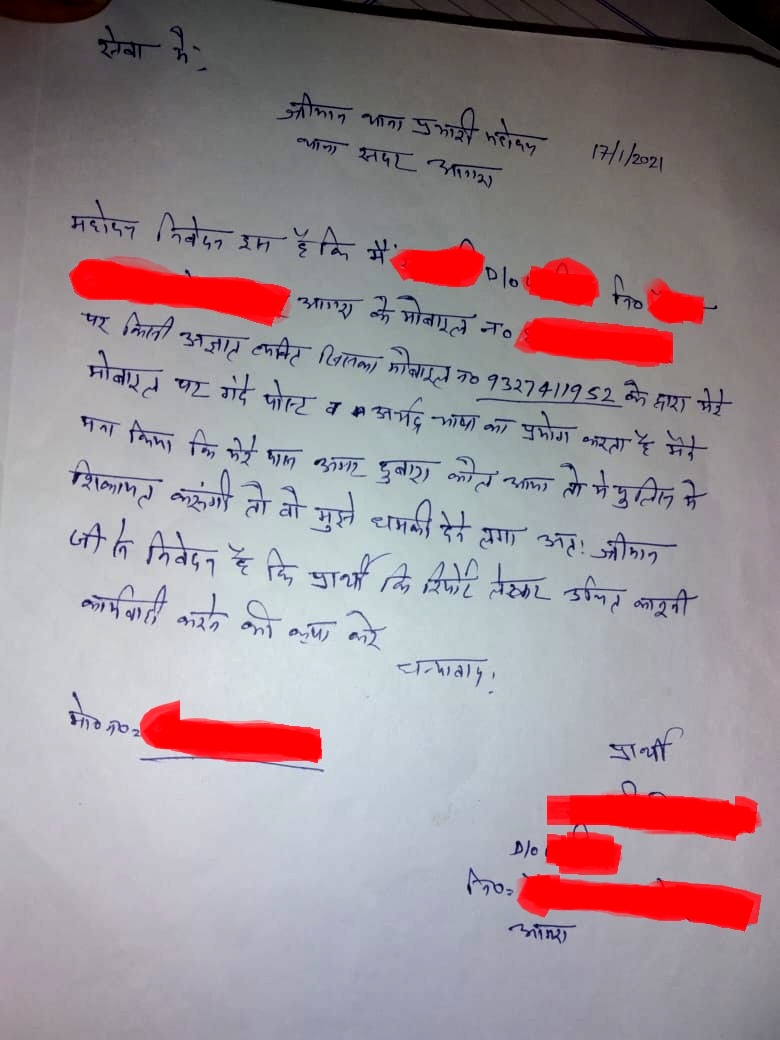 सेवा में:
श्रीमान थाना प्रभारी महोदय 17/1/2021
थाना सदर आगरा
महोदय निवेदन इस है कि मैं D/o नि०
आगरा के मोबाइल न०
पर किसी अज्ञात व्यक्ति जिसका मोबाइल न० 9327411952 के द्वारा मेरे
मोबाइल पर गंदे पोस्ट व अभद्र भाषा का प्रयोग करता है मैंने
मना किया कि मेरे पास अगर दुबारा कॉल आया तो मे पुलिस मे
शिकायत करूंगी तो वो मुझे धमकी देने लगा अत: श्रीमान
जी से निवेदन है कि प्रार्थी कि रिपोर्ट लेकर उचित कानूनी
कार्यवाही करने की कृपा करे
धन्यवाद!
मो० न०=
प्रार्थी
D/o
नि०=
आगरा